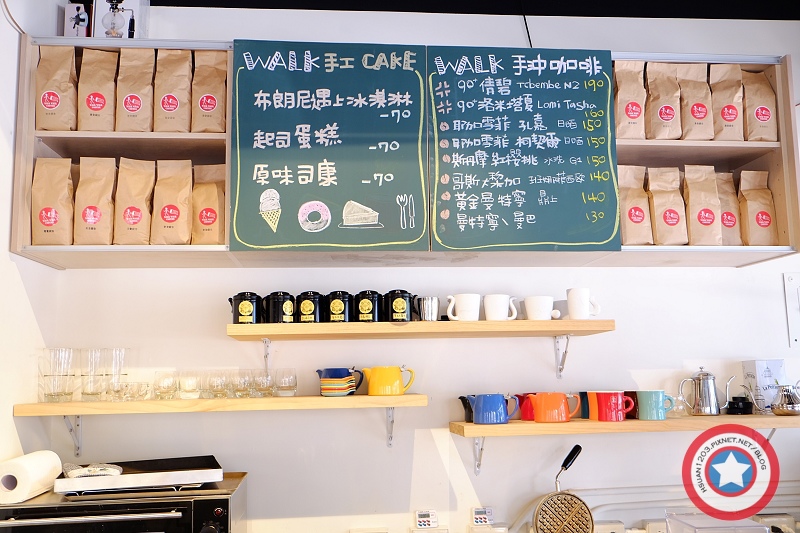 WALK 手工 CAKE
布朗尼遇上冰淇淋
-70
起司蛋糕
-70
原味司康 -70
WALK 手沖咖啡
90° 倩碧 Tchembe N2 190
90° 洛米塔夏 Lomi Tasha
160
耶加雪菲 孔嘉 日曬 150
耶加雪菲 柯契爾 日曬 150
斯丹摩 紅櫻桃 水洗 G1 150
哥斯大黎加 140
黃金曼特寧 鼎上 140
曼特寧、曼巴 130
HSUAN1203.PIXNET.NET/BLOG